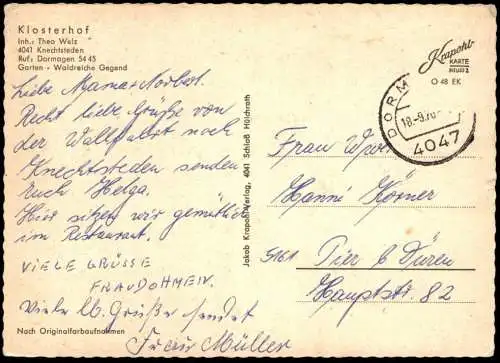 Klosterhof
Inh.: Theo Welz
4041 Knechtsteden
Ruf: Dormagen 5445
Garten - Waldreiche Gegend
Liebe Mama + Norbert.
Recht liebe Grüße von
der Wallfahrt nach
Knechtsteden senden
Euch Helga.
Hier sitzen wir gemütlich
im Restaurant.
VIELE GRÜSSE
FRAU DOHMEN.
Viele lb. Grüße sendet
Frau Müller
Nach Originalfarbaufnahmen
Jakob Krapohl-Verlag, 4041 Schloß Hülchrath
Krapohl-
KARTE
O 48 EK
DORM
18.-9.70
4047
Frau
Hanni Körner
5161 Pier b Düren
Hauptstr. 82